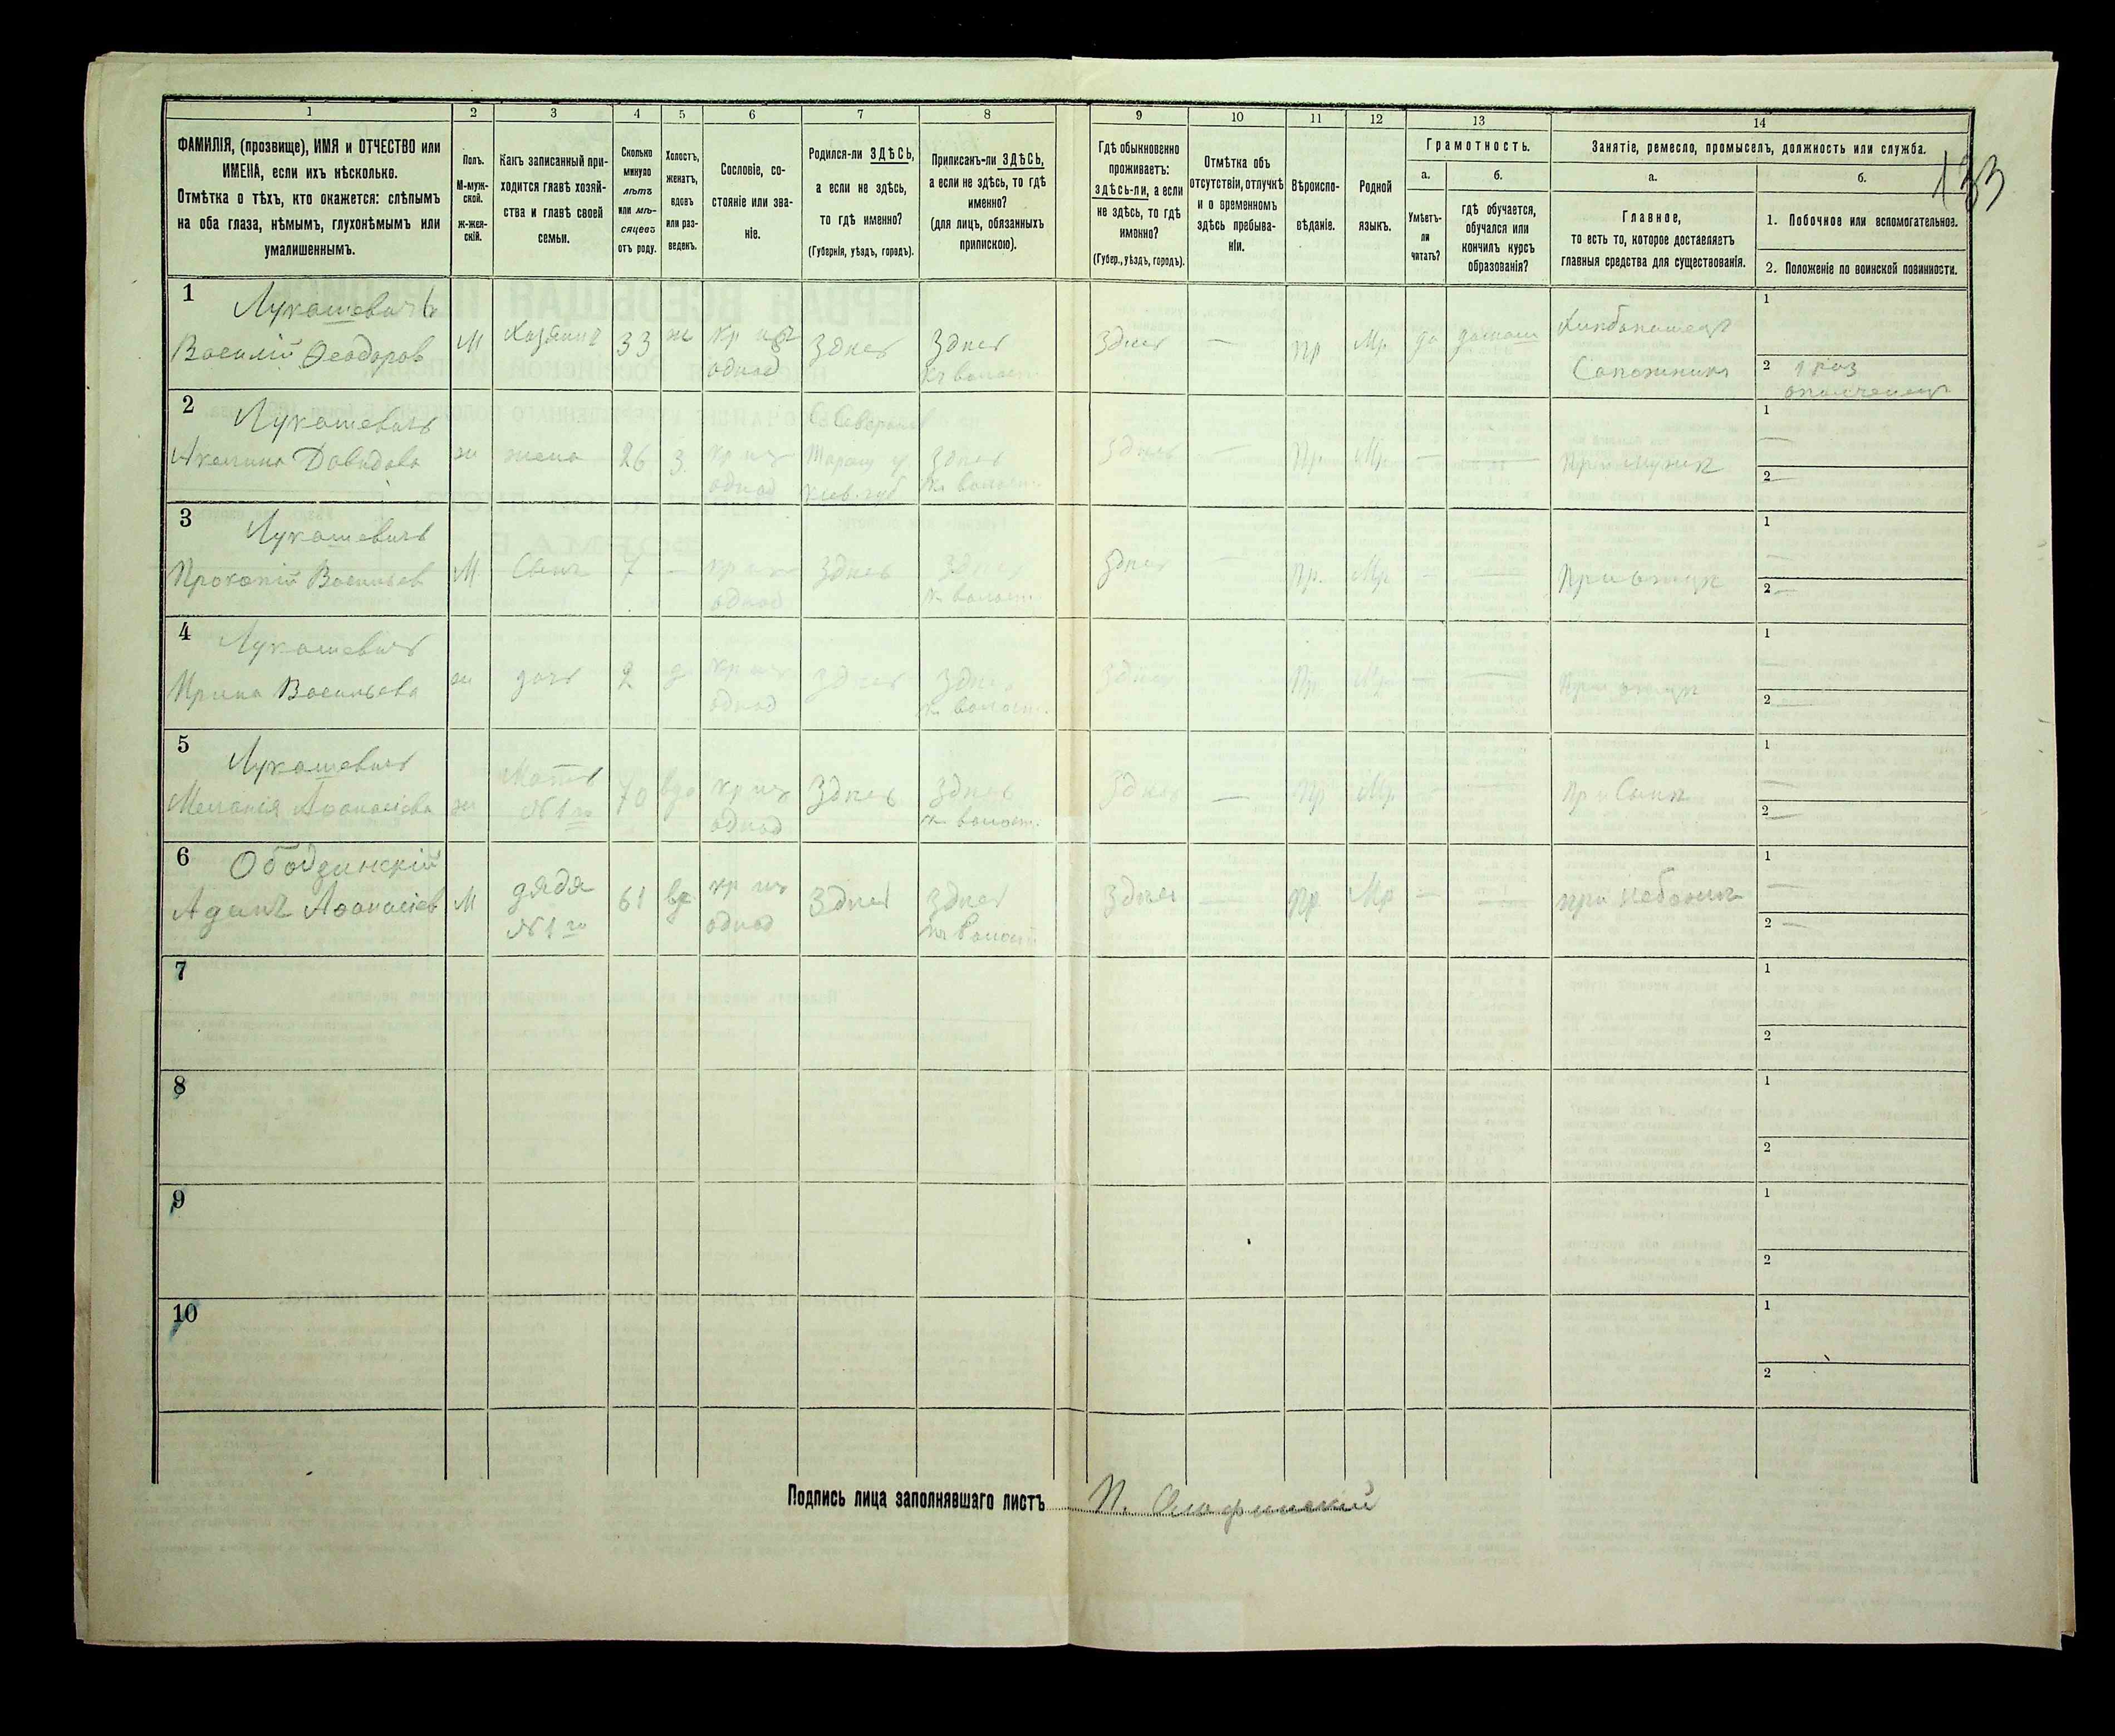 133
1
ФАМИЛІЯ, (прозвище), ИМЯ и ОТЧЕСТВО или
ИМЕНА, если ихъ нѣсколько.
Отмѣтка о тѣхъ, кто окажется: слѣпымъ
на оба глаза, нѣмымъ, глухонѣмымъ или
умалишеннымъ.
2
Полъ.
М-муж-
ской.
Ж-жен-
скій.
3
Какъ записанный при-
ходится главѣ хозяй-
ства и главѣ своей
семьи.
4
Сколько
минуло
лѣтъ
или мѣ-
сяцевъ
отъ роду.
5
Холостъ,
женатъ,
вдовъ
или раз-
веденъ.
6
Сословіе, со-
стояніе или зва-
ніе.
7
Родился-ли ЗДѢСЬ,
а если не здѣсь,
то гдѣ именно?
(Губернія, уѣздъ, городъ).
8
Приписанъ-ли ЗДѢСЬ,
а если не здѣсь, то гдѣ
именно?
(для лицъ, обязанныхъ
припискою).
9
Гдѣ обыкновенно
проживаетъ:
здѣсь-ли, а если
не здѣсь, то гдѣ
именно?
(Губер., уѣздъ, городъ).
10
Отмѣтка объ
отсутствіи, отлучкѣ
и о временномъ
здѣсь пребыва-
ніи.
11
Вѣроиспо-
вѣданіе.
12
Родной
языкъ.
13
Грамотность.
а.
Умѣетъ-
ли
читать?
б.
гдѣ обучается,
обучался или
кончилъ курсъ
образованія?
14
Занятіе, ремесло, промыселъ, должность или служба.
а.
Главное,
то есть то, которое доставляетъ
главныя средства для существованія.
б.
1. Побочное или вспомогательное.
2. Положеніе по воинской повинности.
1
Лукашевичъ
Василій Феодоров
М
Хазяинъ
33
ж
кр изъ
однод
Здпсь
Здпсь
къ волост.
Здпсь
—
пр
Мр
да
Хлибопашецъ
Сапожникъ
1
2 1 раз
ополченецъ
2
Лукашевичъ
Акелина Давидова
ж
жена
26
З
кр изъ
однод
Таращ у
Киев. губ
Здпсь
къ волост.
Здпсь
—
Пр.
Мр.
—
—
При мужп
1
—
2 —
3
Лукашевичъ
Прокопій Васильев
М
Сынъ
7
—
кр изъ
однод
Здпсь
Здпсь
къ волост.
Здпсь
—
Пр.
Мр
—
—
При отцп
1
—
2 —
4
Лукашевичъ
Ирина Васильева
ж
дочь
2
д
кр изъ
однод
Здпсь
Здпсь
къ волост.
Здпсь
—
Пр.
Мр
—
—
При отцп
1
—
2 —
5
Лукашевичъ
Меланія Афанасіева
ж
Мать
№ 1го
70
вдо
кр изъ
однод
Здпсь
Здпсь
къ волост.
Здпсь
—
Пр
Мр.
—
—
При Сынп
1
—
2 —
6
Ободзинскій
Адамъ Афанасіев
М
дядя
№ 1го
61
вд
кр изъ
однод
Здпсь
Здпсь
къ волост
Здпсь
—
Пр
Мр
—
—
при небожип
1
—
2 —
7
1
2
8
1
2
9
1
2
10
1
2
Подпись лица заполнявшаго листъ П.